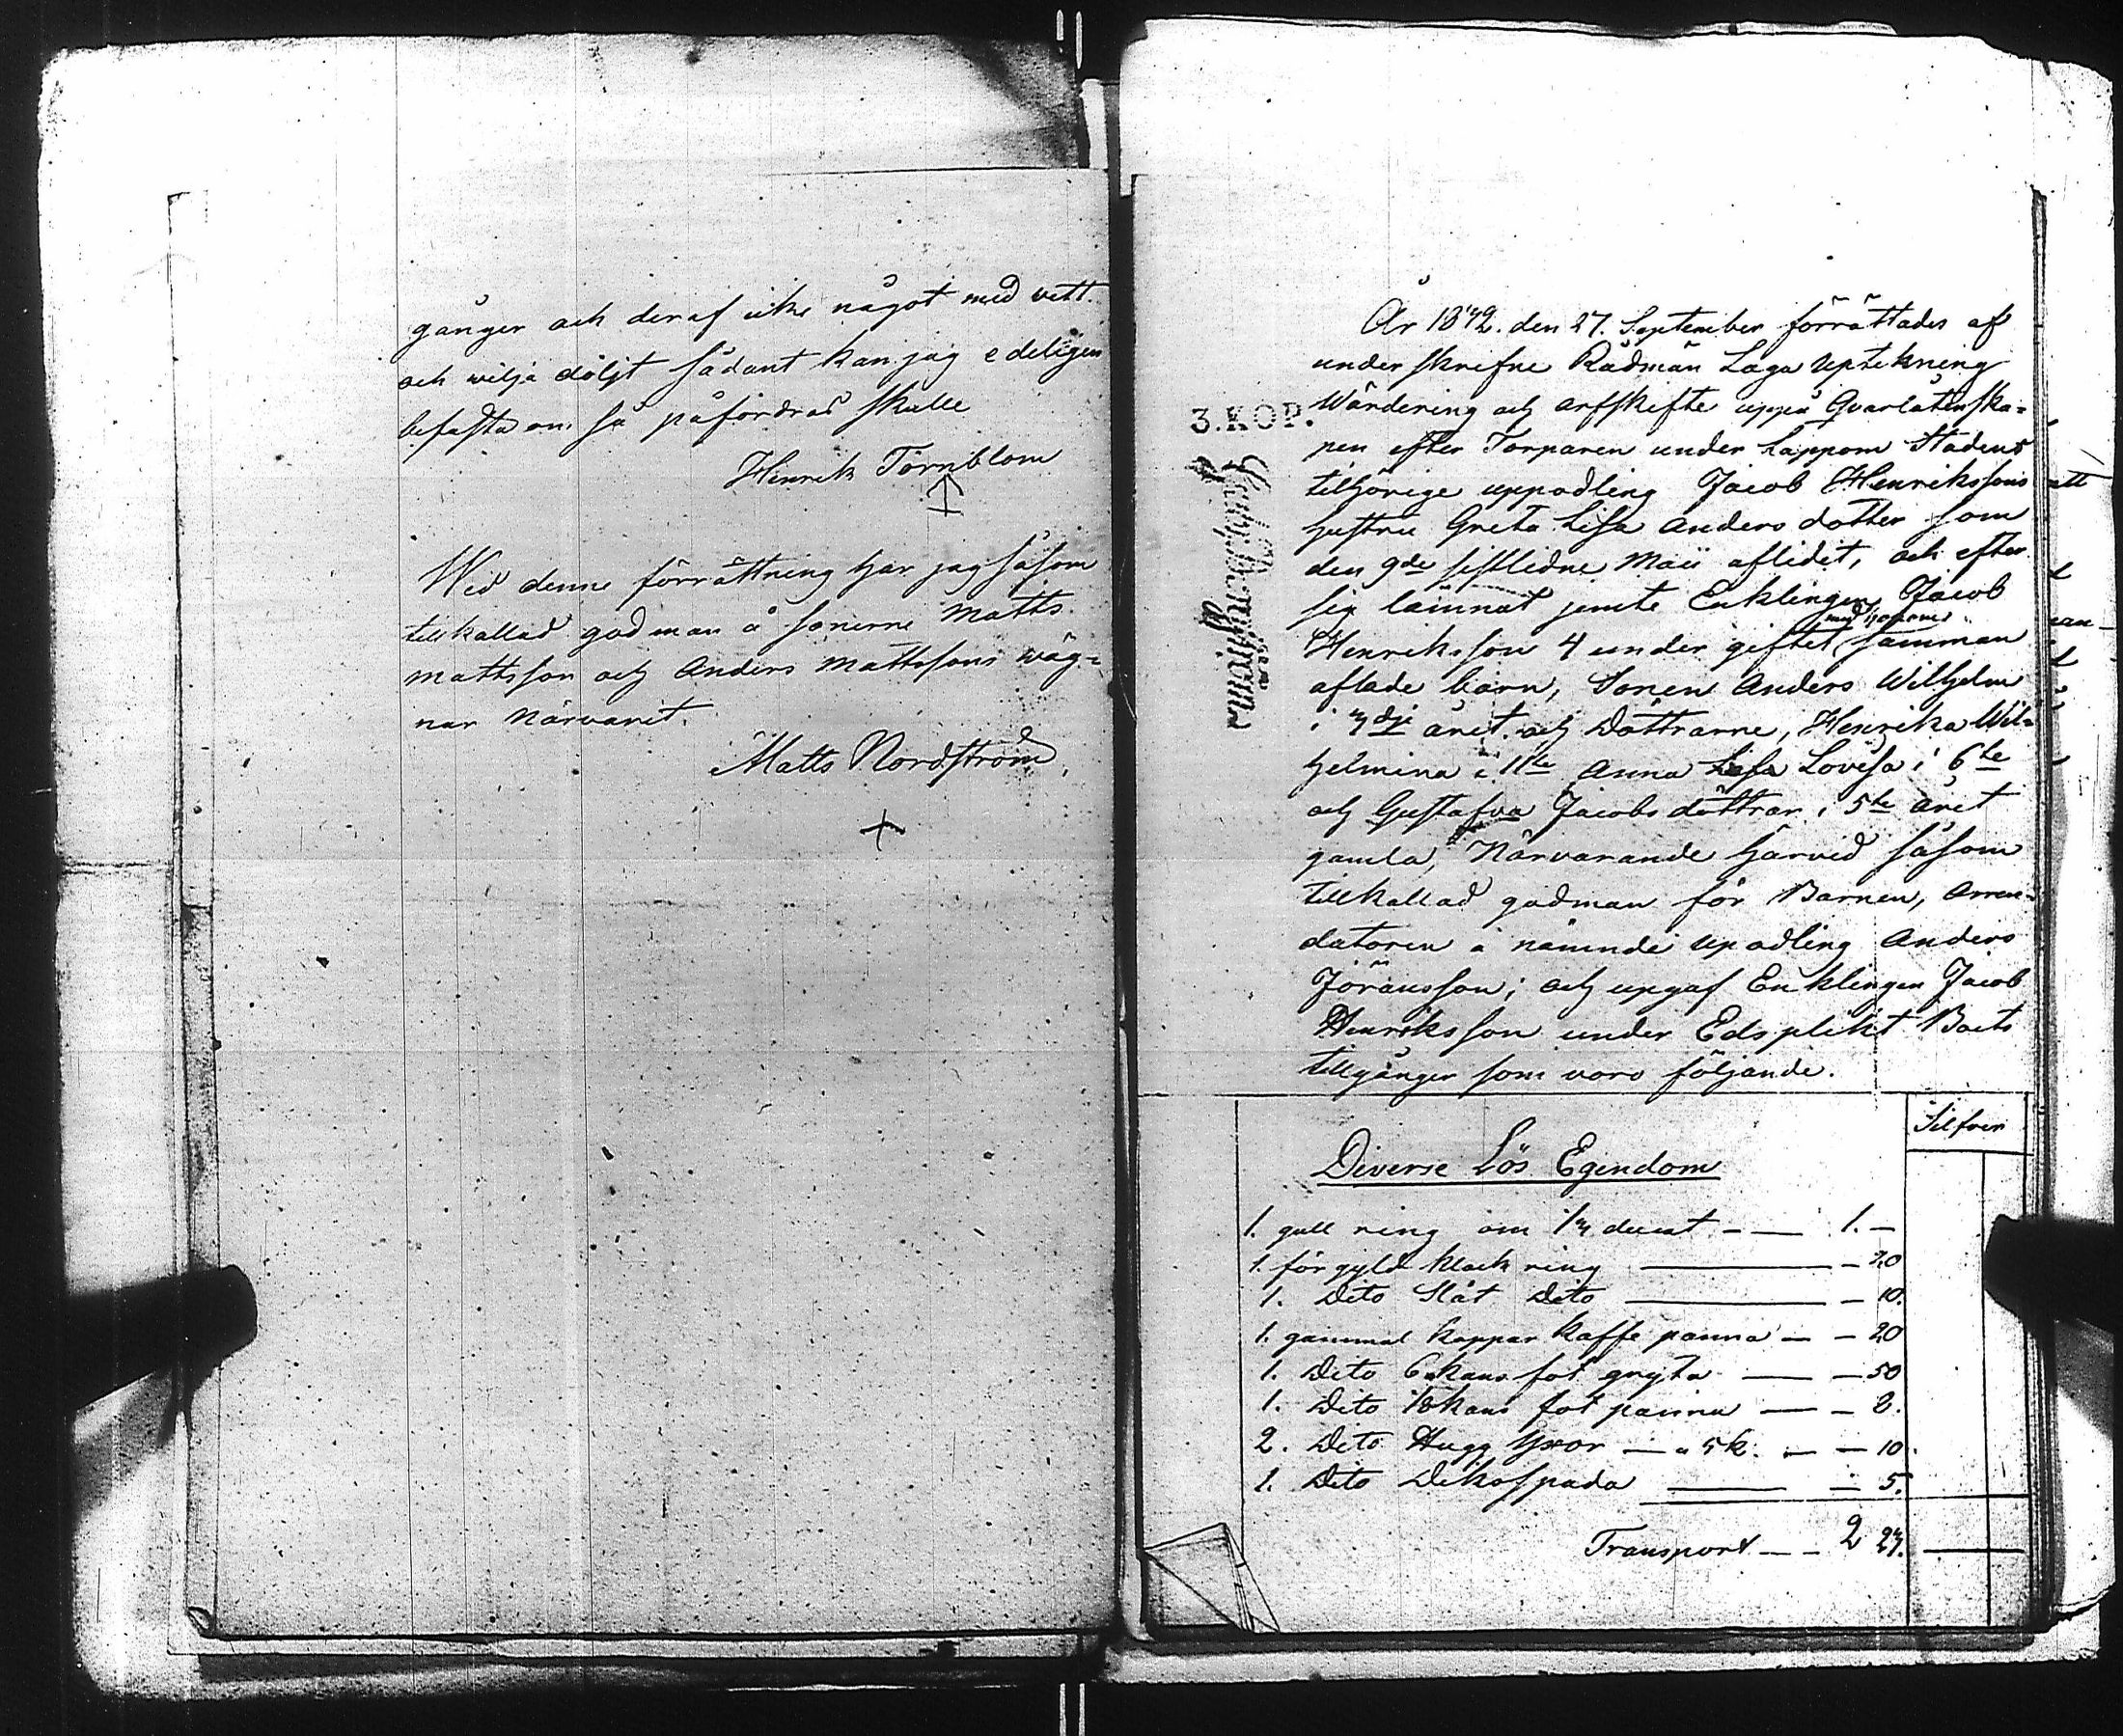 gånger och deraf icke något med vett
och wilja döljt sådant kan jag edeligen
befästa om så påfordras skulle
Henrik Törnblom
Wid denne förrättning har jag såsom
tillkallad godman å sönerne Matts
Mattsson och Anders Mattssons wäg=
nar närvarit.
Matts Nordström
År 1842. den 27. September förrättades af
underskrefne Rådman Laga Uptekning
3.KOP.
Wärdering och arfskifte uppå Qvarlåtenska=
pen efter Torparen under Lappom Stadens
tilhörige uppodling Jacob Henrikssons
hustru Greta Lisa Andersdotter som
den 9de sistledne Maii aflidit, och efter
sig lämnat jemte Enklingen Jacob
med honom
Henriksson 4 under giftet samman
aflade barn, Sonen Anders Wilhelm
i 3dje året och Döttrarne, Henrika Wil=
helmina i 11te Anna Lisa Lovisa i 6te
och Gustafva Jacobsdöttrar i 5te året
gamla, Närvarande härvid såsom
tillkallad godman för Barnen, Arren=
datoren å nämnde upodling Anders
Jöransson; och upgaf Enklingen Jacob
Henriksson under Edsplikt Boets
tillgånger som voro följande.
Silfver
Diverse Lös Egendom
1. gull ring om 1/4 ducat - — 1. -
1. förgyld klack ring — - 20
1. Dito Slät Dito — - 10.
1. gammal koppar kaffe panna — - 20
1. Dito 6 kans fot gryta — - 50
1. Dito 1/8 kans fot panna — - 8.
2. Dito Hugg Yxor — a 5 k. — - 10.
1. Dito Dikesspada — - 5.
Transport — - 2 23.